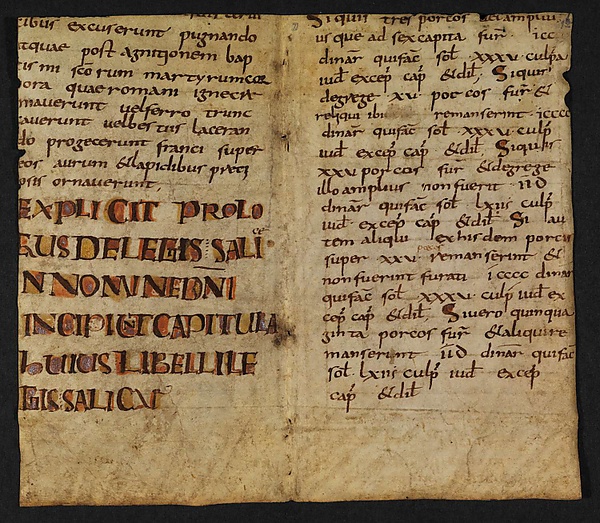 cibus excuserunt pugnando
atquae post agnitionem bap
tismi scōrum martyrum cor
pora quae romani igne cre
maverunt vel ferro trunc
averunt vel bestiis laceran
do progecerunt franci super
eos aurum & lapidibus preti
osis ornaverunt.
EXPLICIT PROLO
GUS DE LEGIS SALI
ce
IN NOMINE DNI
INCIPIUNT CAPITULA
HUIUS LIBELLI LE
GIS SALICAE
Si quis tres porcos
usque ad sex capita fur̄
dinar̄ qui fac̄ sol̄ ·xxxv· culpa
iud̄ excep̄ cap̄ & dil̄ Si quis
de grege ·xv· porcos fur̄ &
reliqui ibi remanserint ·icccc
dinar̄ qui fac̄ sol̄ ·xxxv· culp̄
iud̄ excep̄ cap̄ & dil̄ Si quis
xxv porcos fur̄ & de grege
illo amplius non fuerit ·īīD
dinar̄ qui fac̄ sol̄ lxii culp̄
iud̄ excep̄ cap̄ & dil̄ Si au
tem aliqui ex hisdem porcis
super ·xxv· remanserint &
non fuerint furati ·icccc dinar̄
qui fac̄ sol̄ xxxv culp̄ iud̄ ex
cep̄ cap̄ & dil̄. Si vero quinqua
ginta porcos fur̄ & aliqui re
manserunt īīD dinar̄ qui fac̄
sol̄ lxii culp̄ iud̄ excep̄
cap̄ & dil̄